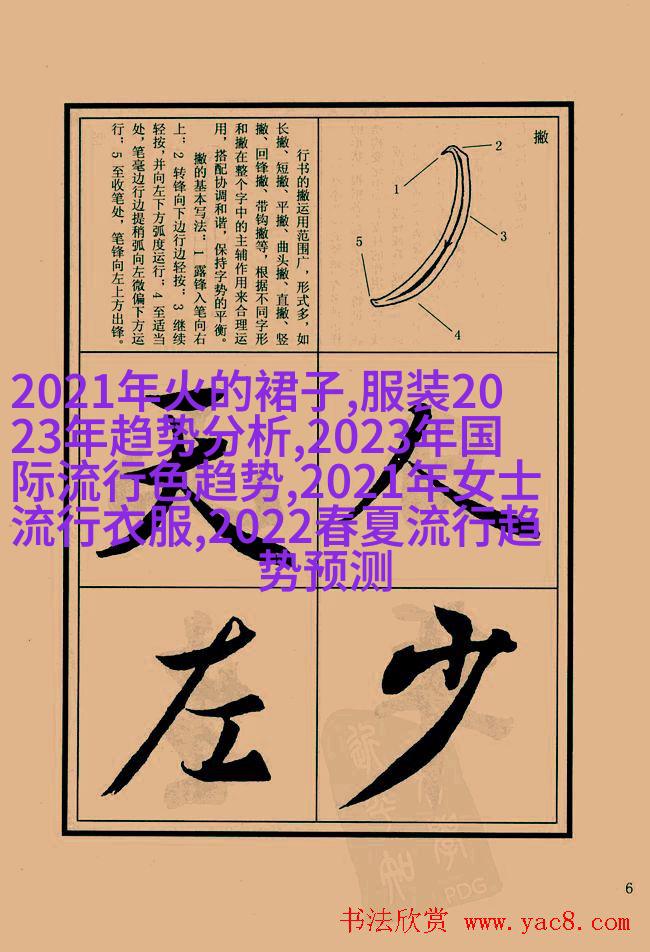 撇
1
2
3
4
5
行书的撇运用范围广，形式多，如
长撇、短撇、平撇、曲头撇、直撇、竖
撇、回锋撇、带钩撇等，根据不同字形
和撇在整个字中的主辅作用来合理运
用，搭配协调和谐，保持字势的平衡。
撇的基本写法：1 露锋入笔向右
上；2 转锋向下边行边轻按；3 继续
轻按，并向左下方弧度运行；4 至适当
处，笔毫边行边提稍弧向左微偏下方运
行；5 至收笔处，笔锋向左上方出锋。
2021年火的裙子,服装20
23年趋势分析,2023年国
际流行色趋势,2021年女士
流行衣服,2022春夏流行趋
势预测
人
天
少
左
PDG
6
书法欣赏 www.yac8.com